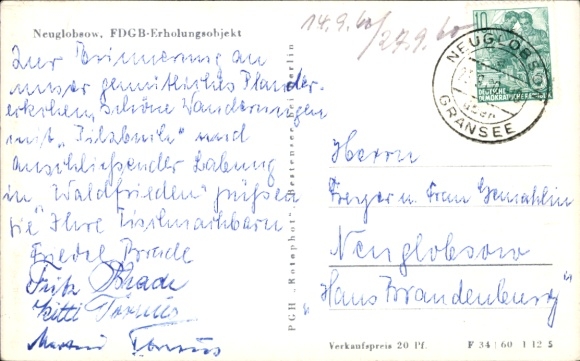 Neuglobsow, FDGB-Erholungsobjekt
14.9.60/
/27.9.60
10
DEUTSCHE
DEMOKRATISCHE
NEUGLOBSOW
GRANSEE
Zur Erinnerung an
unser gemütliches Plauder-
eckchen, schöne Wanderungen
mit "Pilzbeute" und
anschließender Labung
in "Waldfrieden" grüßen
sie Ihre Tischnachbarn
Friedel Brade
Fritz Brade
Kitti Tornus
Tornus
PGH „Rotaphot" Bestensee bei Berlin
Herrn
u. Frau Gemahlin
Neuglobsow
"Haus Brandenburg"
Verkaufspreis 20 Pf.
F 34 | 60 I 12 5